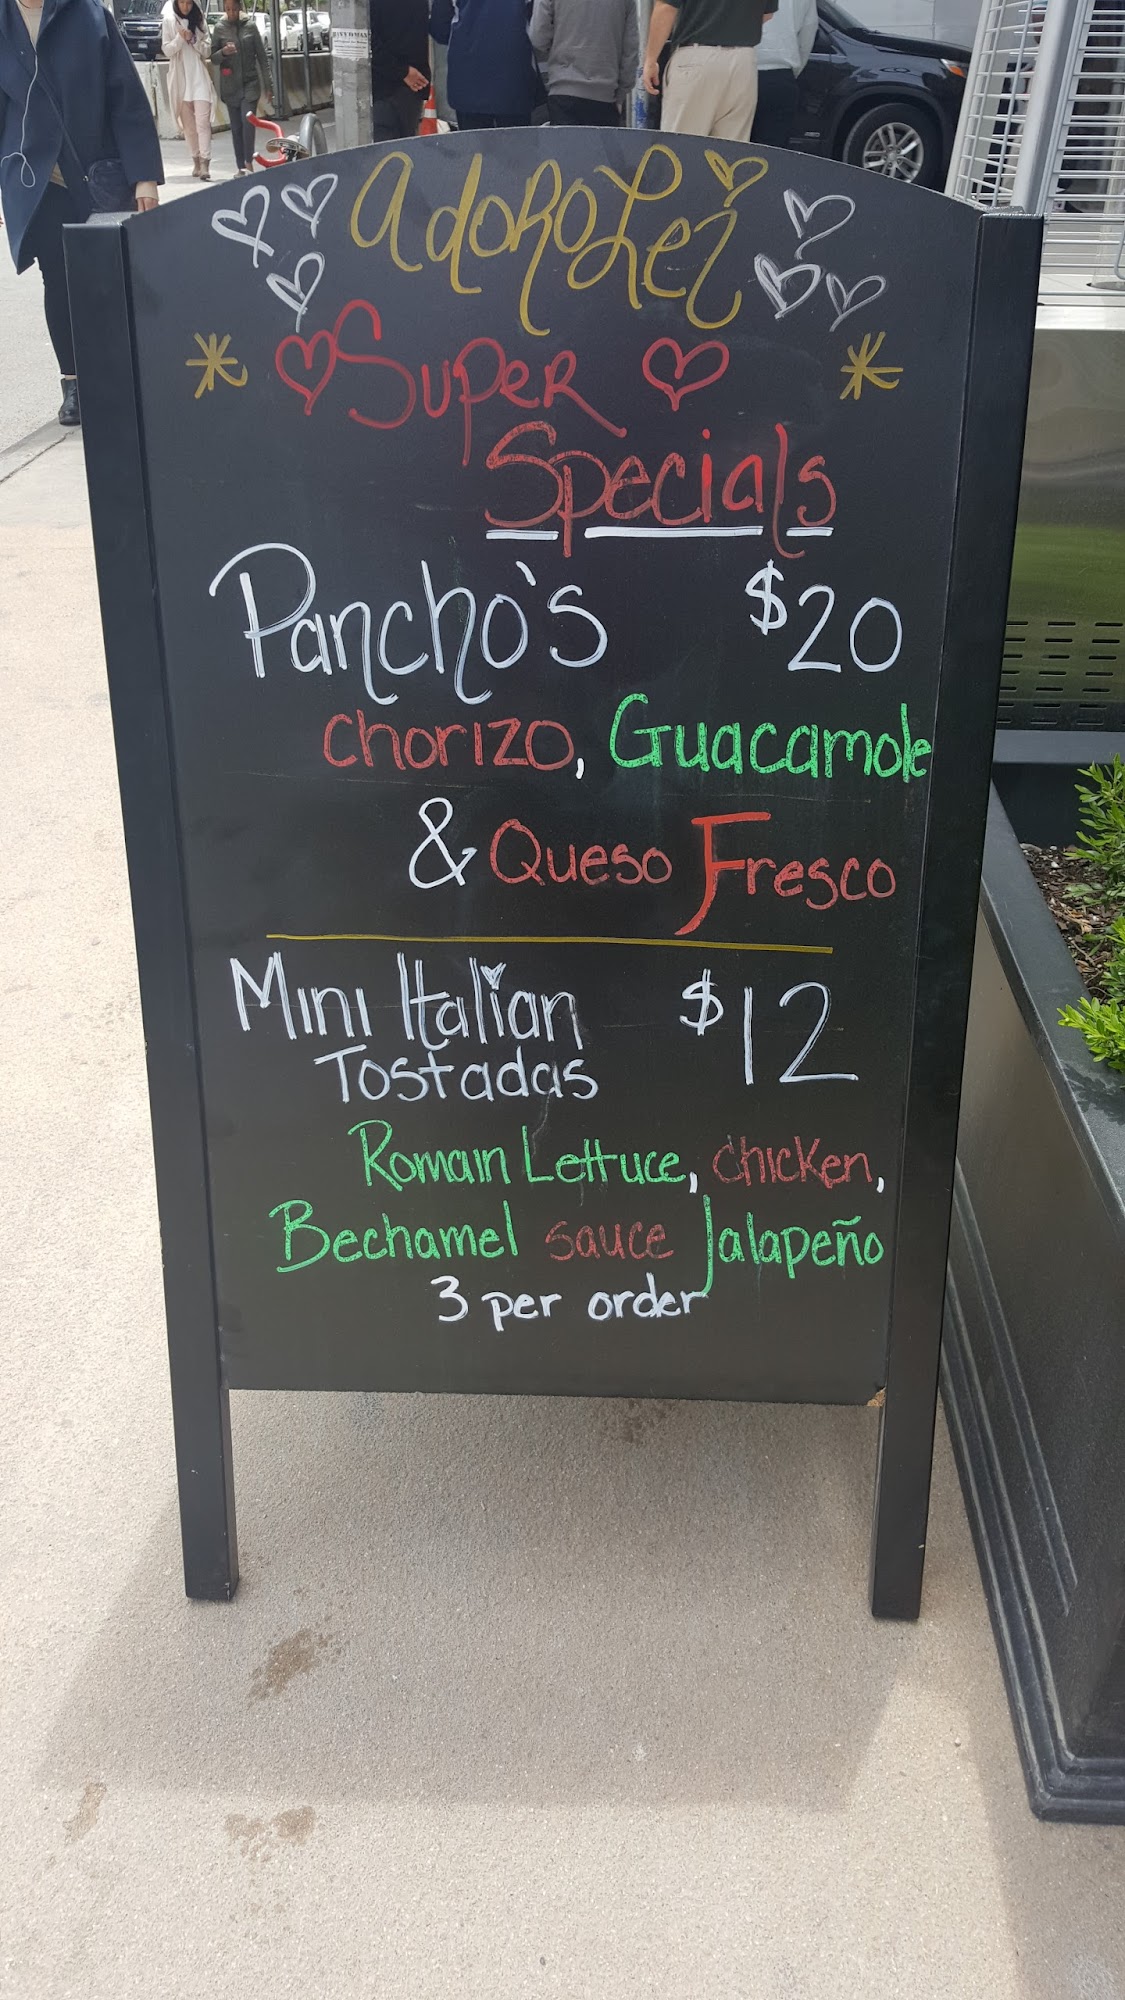 Adoro Lei
Super
Specials
Pancho's $20
Chorizo, Guacamole
& Queso Fresco
Mini Italian $12
Tostadas
Romain Lettuce, chicken,
Bechamel sauce Jalapeño
3 per order